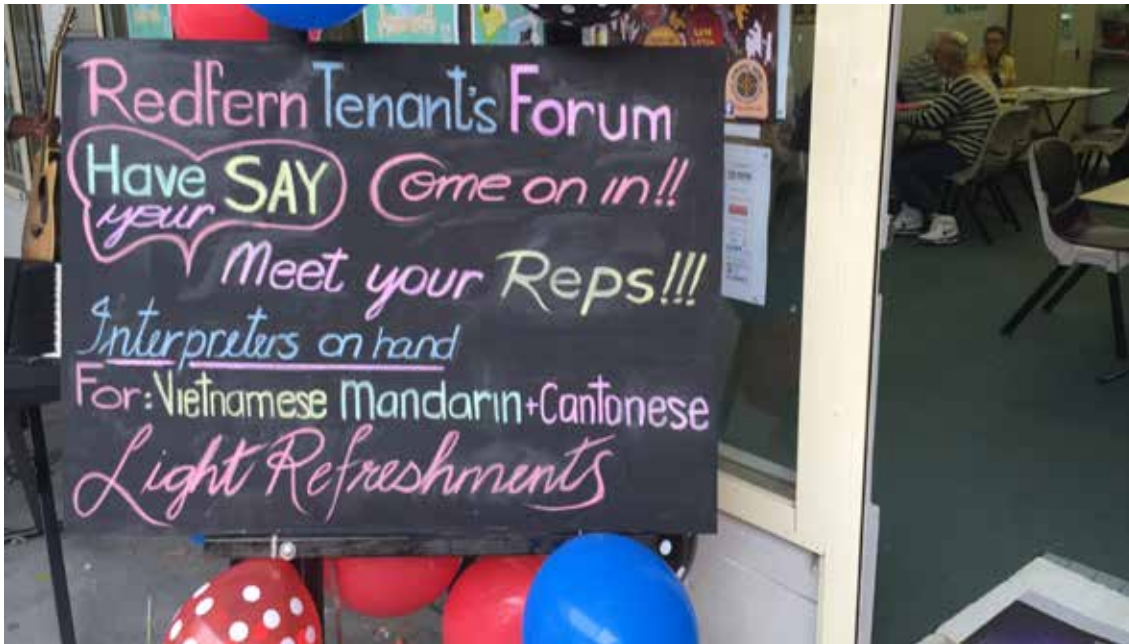 Redfern Tenant's Forum
Have your SAY
Come on in!!
Meet your Reps!!!
Interpreters on hand
For: Vietnamese Mandarin + Cantonese
Light Refreshments